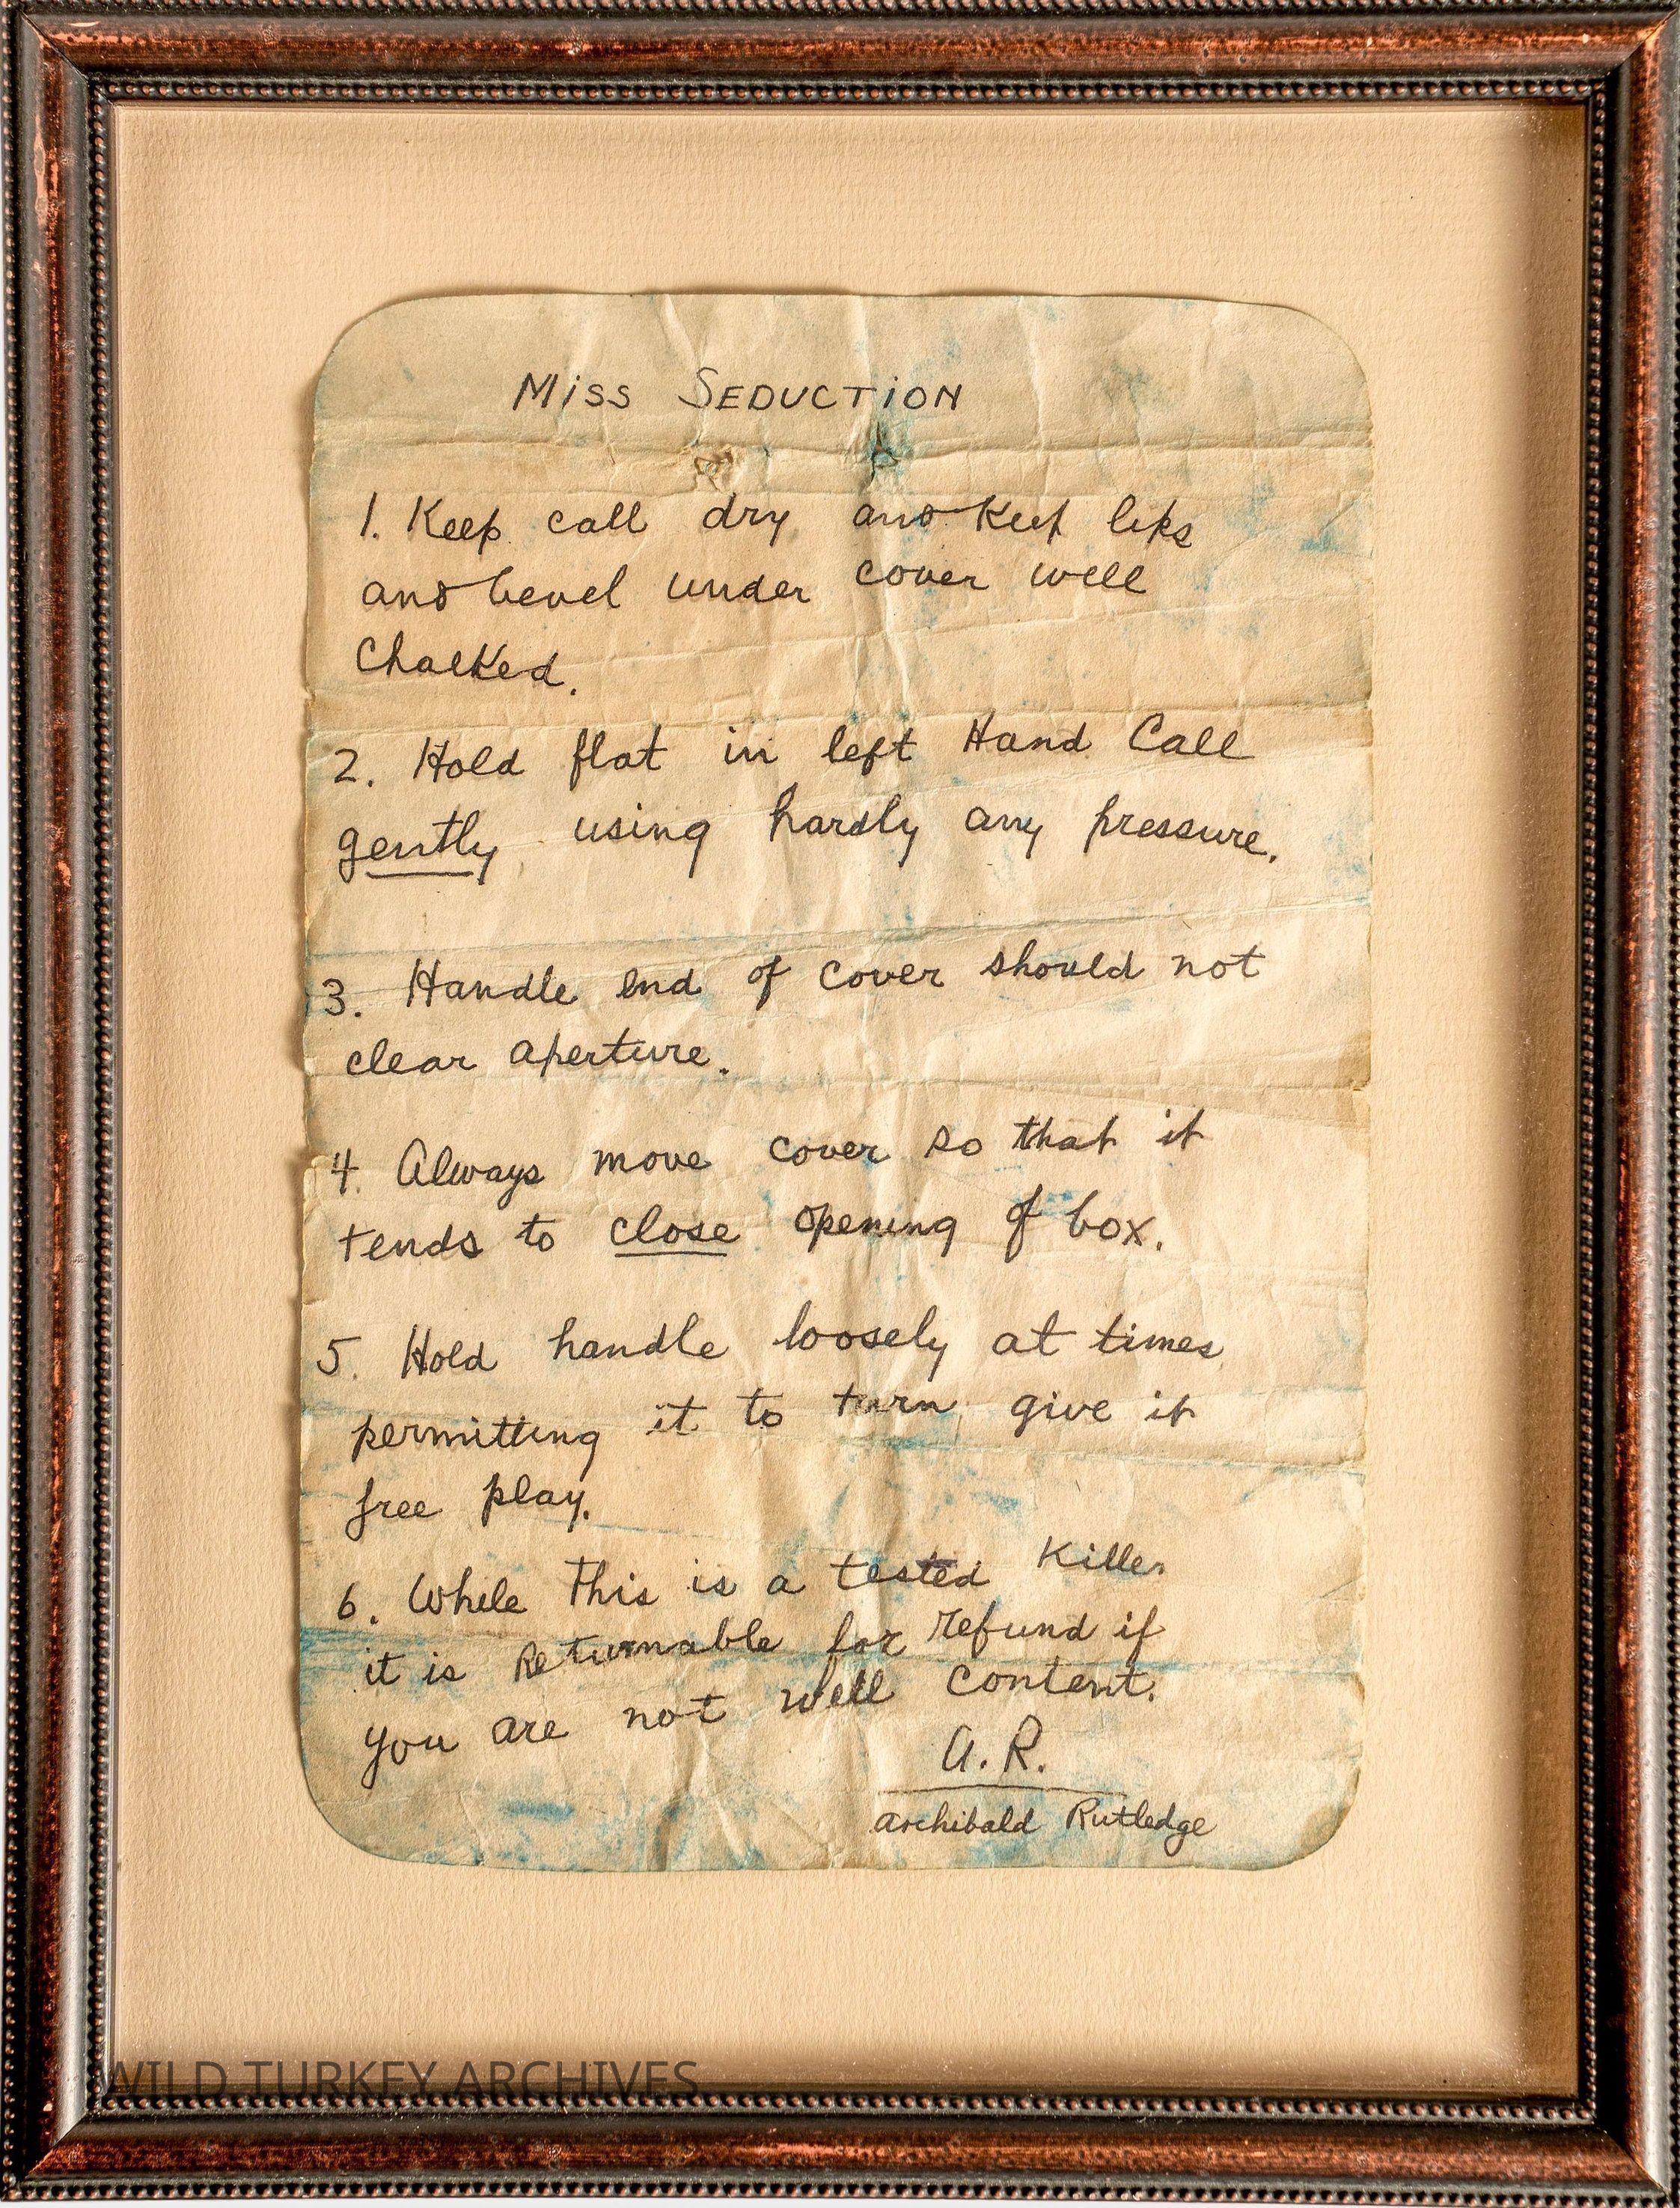 Miss SEDUCTION
1. Keep call dry and Keep lips
and bevel under cover well
Chalked.
2. Hold flat in left Hand Call
gently using hardly any pressure.
3. Handle end of cover should not
clear aperture.
4. Always move cover so that it
tends to close opening of box.
5. Hold handle loosely at times
permitting it to turn give it
free play.
6. While this is a tested Killer
it is Returnable for refund if
you are not well content.
A.R.
Archibald Rutledge
WILD TURKEY ARCHIVES